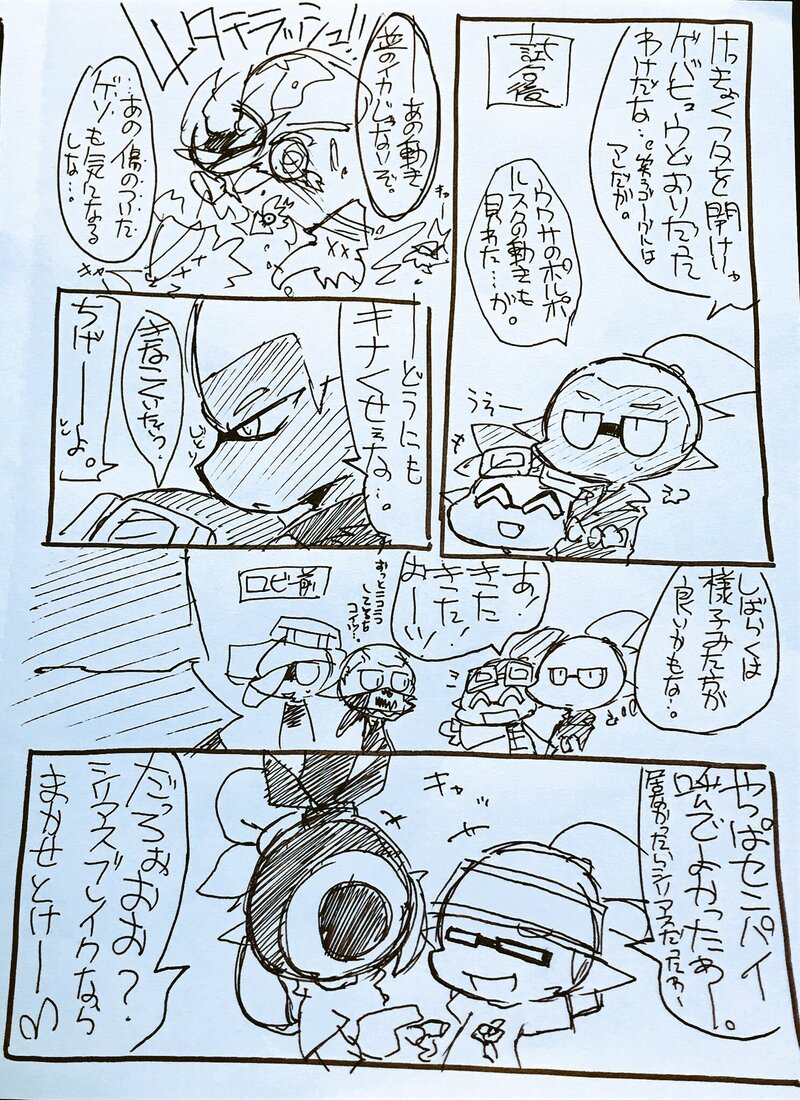 試合後
けっきょくフタを開けゃ
ゲバヒュウどおりだった
わけだな…。
アレだが。
ウワサのポルポ
ルスクの動きも
見れた…が。
うえー
あの動き
並のイカじゃないぞ。
ムタチラッシュ!!
…あの傷のついた
ゲソも気になる
しな…。
キャー
キャー
―どうにも
キナくせぇな…。
きなこくいたい?
じとり
ちげーーよ。
しばらくは
様子みた方が
良いかもな…。
あ!
きた
きった
おーーい!
ロビー前
ずっとニコニコ
してるな
コイツ…。
やっぱセンパイ
呼んでよかったぁー。
居なかったらシリアスだったわ~
キャッ
だっろぉおお?
シリアスブレイクなら
まかせとけーー